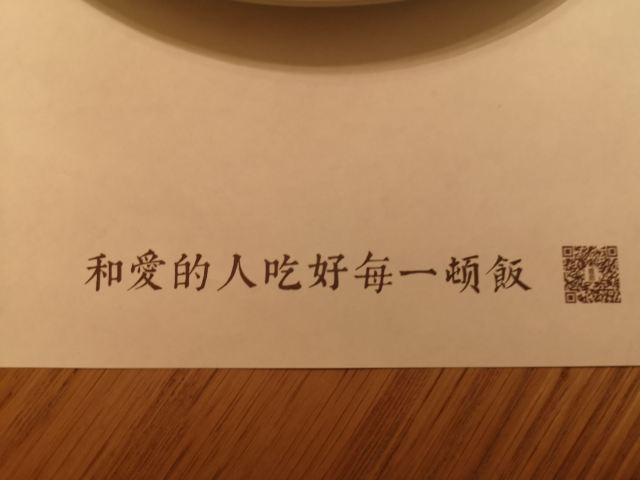 和愛的人吃好每一頓飯